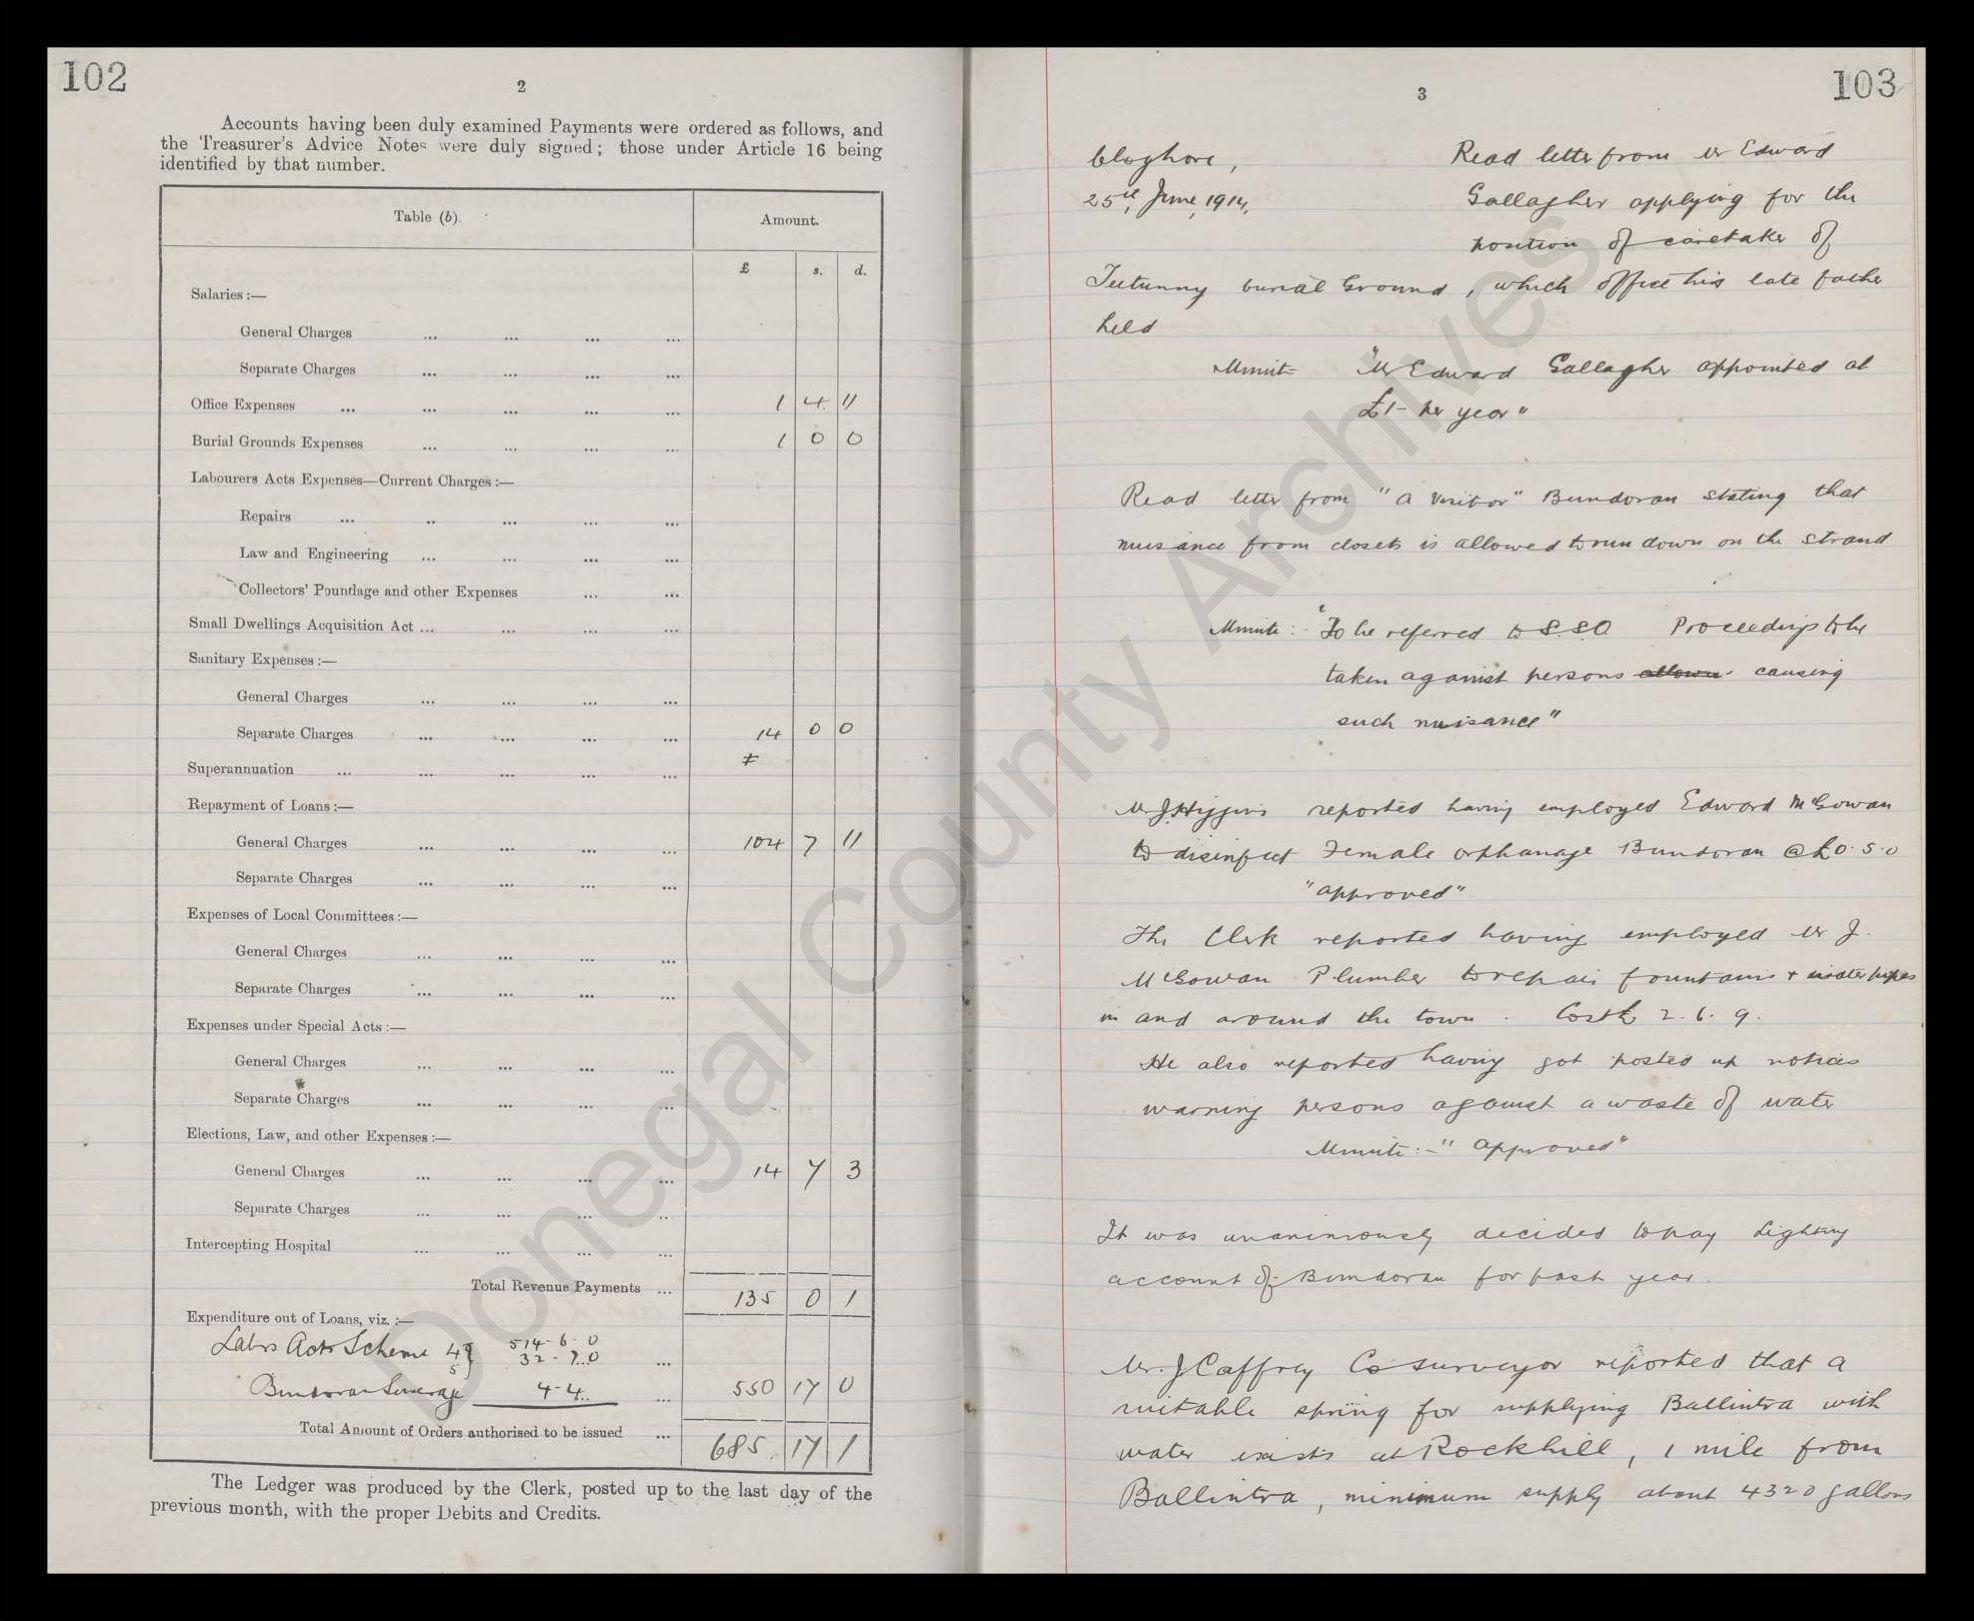 102
2
Accounts having been duly examined Payments were ordered as follows, and
the Treasurer's Advice Notes were duly signed; those under Article 16 being
identified by that number.
Table (b). Amount.
£ s. d.
Salaries:—
General Charges ... ... ... ...
Separate Charges ... ... ... ...
Office Expenses ... ... ... ... ... 1 4 11
Burial Grounds Expenses ... ... ... ... 1 0 0
Labourers Acts Expenses—Current Charges:—
Repairs ... ... ... ... ...
Law and Engineering ... ... ... ...
Collectors' Poundage and other Expenses ... ...
Small Dwellings Acquisition Act ... ... ... ...
Sanitary Expenses:—
General Charges ... ... ... ...
Separate Charges ... ... ... ... 14 0 0
Superannuation ... ... ... ... ...
Repayment of Loans:—
General Charges ... ... ... ... 104 7 11
Separate Charges ... ... ... ...
Expenses of Local Committees:—
General Charges ... ... ... ...
Separate Charges ... ... ... ...
Expenses under Special Acts:—
General Charges ... ... ... ...
Separate Charges ... ... ... ...
Elections, Law, and other Expenses:—
General Charges ... ... ... ... 14 7 3
Separate Charges ... ... ... ...
Intercepting Hospital ... ... ... ...
Total Revenue Payments ... 135 0 1
Expenditure out of Loans, viz.:—
Labrs Acts Scheme 4 514-6-0
5 32-7-0 ...
Bundoran Sewerage 4-4 ... 550 17 0
Total Amount of Orders authorised to be issued ... 685 17 1
The Ledger was produced by the Clerk, posted up to the last day of the
previous month, with the proper Debits and Credits.
103
3
Cloghore,
25th June, 1914.
Read letter from Mr Edward
Gallagher applying for the
position of caretaker of
Tutunny burial Ground, which office his late father
held
Minute "Mr Edward Gallagher appointed at
£1- per year"
Read letter from "A Visitor" Bundoran stating that
nuisance from closets is allowed to run down on the strand
Minute:- "To be referred to S.S.O Proceedings to be
taken against persons allown causing
such nuisance"
Mr J Higgins reported having employed Edward McGowan
to disinfect Female orphanage Bundoran @ £0.5.0
"approved"
The Clerk reported having employed Mr J.
McGowan Plumber to repair fountains + water pipes
in and around the town. Cost £2.6.9.
He also reported having got posted up notices
warning persons against a waste of water
Minute:- "approved"
It was unanimously decided to pay Lighting
account of Bundoran for past year.
Mr. J Caffrey Co surveyor reported that a
suitable spring for supplying Ballintra with
water exists at Rockhill, 1 mile from
Ballintra, minimum supply about 4320 gallons
Donegal County Archives